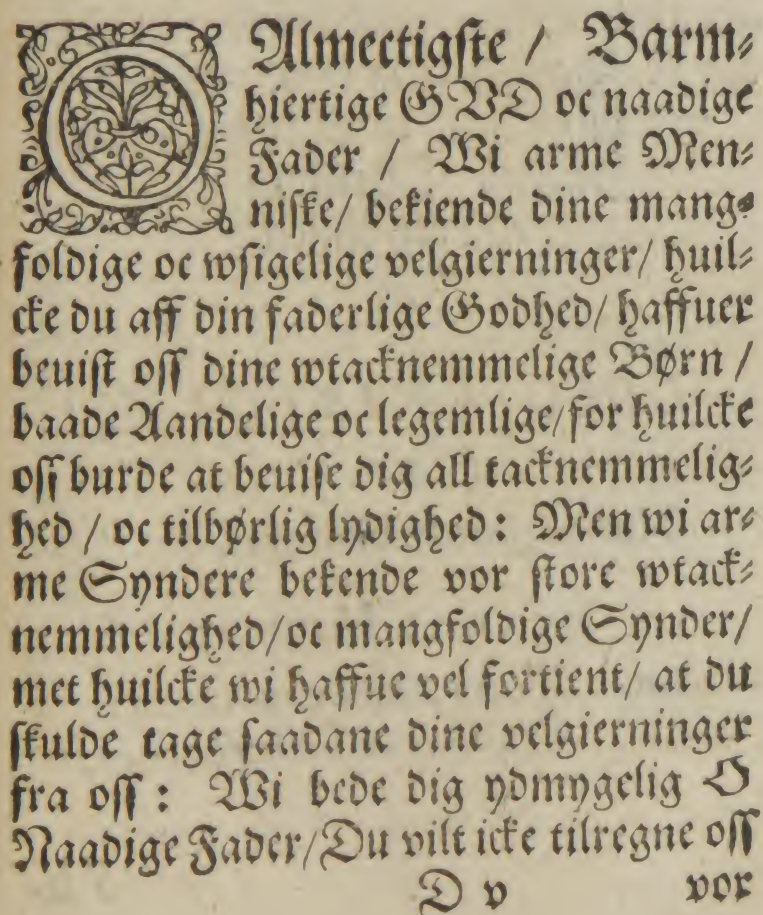 OAlmectigſte / Barm⸗
hiertige GVD oc naadige
Fader / Wi arme Men⸗
niſke/ bekiende dine mang⸗
foldige oc wſigelige velgierninger/ huil⸗
cke du aff din faderlige Godhed/ haffuer
beuiſt oſſ dine wtacknemmelige Børn /
baade Aandelige oc legemlige/ for huilcke
oſſ burde at beuiſe dig all tacknemmelig⸗
hed / oc tilbørlig lydighed : Men wi ar⸗
me Syndere bekende vor ſtore wtack⸗
nemmelighed/ oc mangfoldige Synder/
met huilcke wi haffue vel fortient/ at du
ſkulde tage ſaadane dine velgierninger
fra oſſ : Wi bede dig ydmygelig O
Naadige Fader/ Du vilt icke tilregne oſſ
D v vor